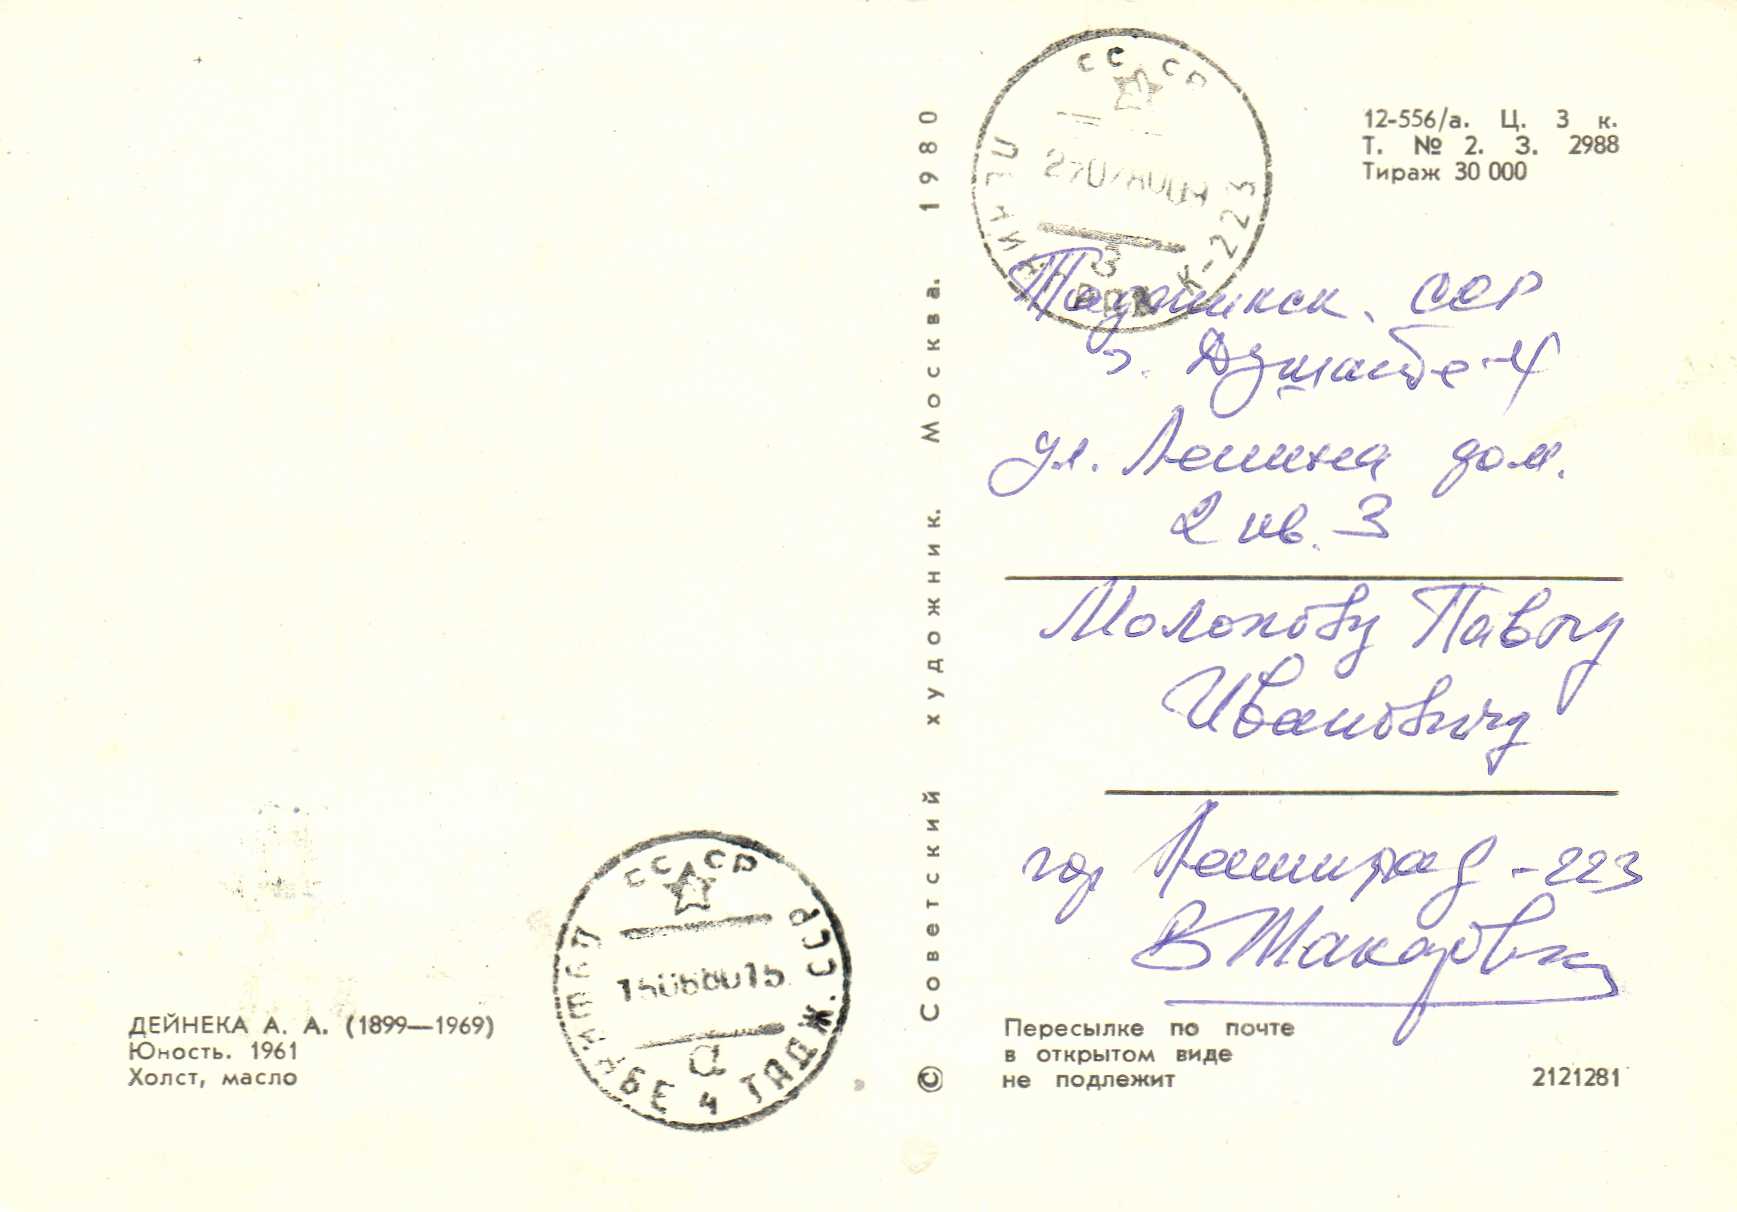 12-556/а. Ц. 3 к.
Т. № 2. З. 2988
Тираж 30 000
СССР
К-223
З
Таджикск. ССР
г. Душанбе-4
ул. Ленина дом.
2 кв. 3
Молокову Павлу
Ивановичу
гор Ленинград-223
В
Пересылке по почте
в открытом виде
не подлежит
2121281
© Советский художник. Москва. 1980
СССР
ДУШАНБЕ 4 ТАДЖ. ССР
а
ДЕЙНЕКА А. А. (1899—1969)
Юность. 1961
Холст, масло